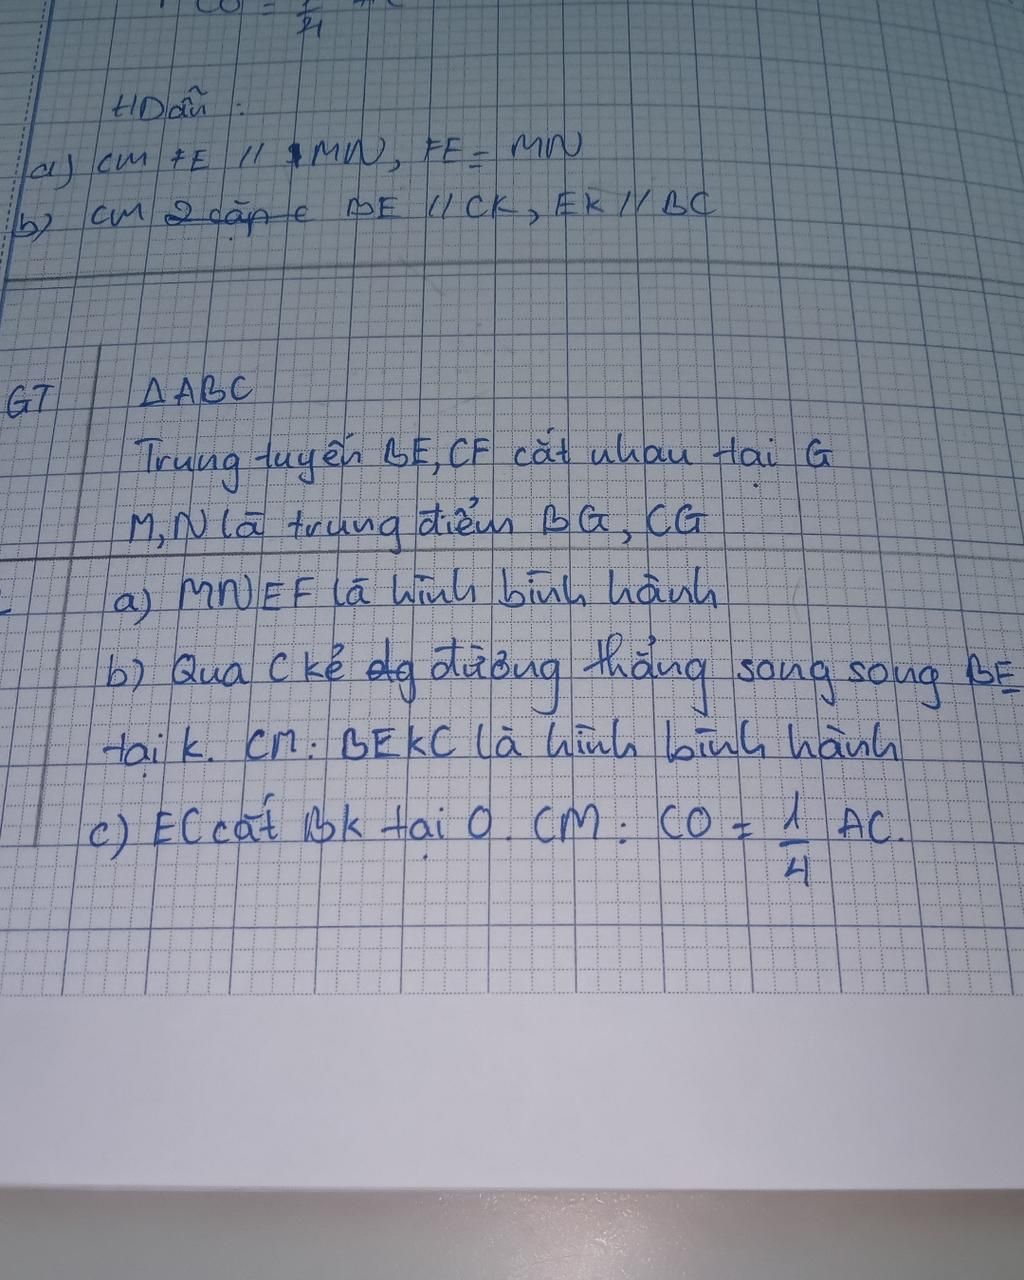 CO = 1/4
HDẫn :
a) CM FE // MN, FE = MN
b) CM 2 cặp c BE // CK, EK // BC
GT ΔABC
Trung tuyến BE, CF cắt nhau tại G
M, N là trung điểm BG, CG
a) MNEF là hình bình hành
b) Qua C kẻ dg đường thẳng song song BE
tại K. CM: BEKC là hình bình hành
c) EC cắt BK tại O. CM: CO = 1/4 AC.